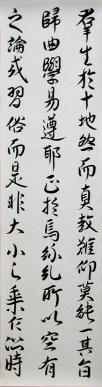 羣生於十地然而真教難仰莫能一其旨
歸曲學易遵耶正於焉紛糺所以空有
之論或習俗而是非大小之乘乍沿時